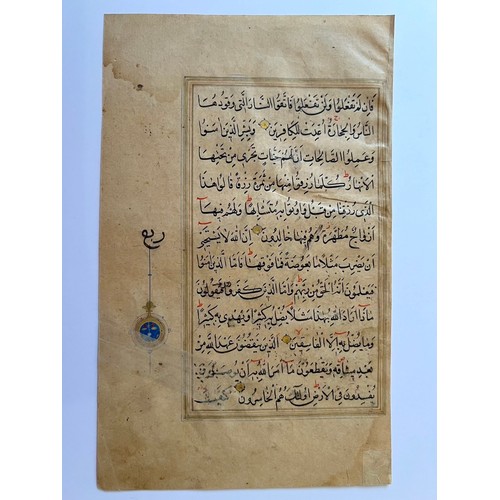 فَإِنْ لَمْ تَفْعَلُوا وَلَنْ تَفْعَلُوا فَاتَّقُوا النَّارَ الَّتِي وَقُودُهَا
النَّاسُ وَالْحِجَارَةُ أُعِدَّتْ لِلْكَافِرِينَ وَبَشِّرِ الَّذِينَ آمَنُوا
وَعَمِلُوا الصَّالِحَاتِ أَنَّ لَهُمْ جَنَّاتٍ تَجْرِي مِنْ تَحْتِهَا
الْأَنْهَارُ كُلَّمَا رُزِقُوا مِنْهَا مِنْ ثَمَرَةٍ رِزْقًا قَالُوا هَذَا
الَّذِي رُزِقْنَا مِنْ قَبْلُ وَأُتُوا بِهِ مُتَشَابِهًا وَلَهُمْ فِيهَا
أَزْوَاجٌ مُطَهَّرَةٌ وَهُمْ فِيهَا خَالِدُونَ إِنَّ اللَّهَ لَا يَسْتَحْيِي
أَنْ يَضْرِبَ مَثَلًا مَا بَعُوضَةً فَمَا فَوْقَهَا فَأَمَّا الَّذِينَ آمَنُوا
فَيَعْلَمُونَ أَنَّهُ الْحَقُّ مِنْ رَبِّهِمْ وَأَمَّا الَّذِينَ كَفَرُوا فَيَقُولُونَ
مَاذَا أَرَادَ اللَّهُ بِهَذَا مَثَلًا يُضِلُّ بِهِ كَثِيرًا وَيَهْدِي بِهِ كَثِيرًا
وَمَا يُضِلُّ بِهِ إِلَّا الْفَاسِقِينَ الَّذِينَ يَنْقُضُونَ عَهْدَ اللَّهِ مِنْ
بَعْدِ مِيثَاقِهِ وَيَقْطَعُونَ مَا أَمَرَ اللَّهُ بِهِ أَنْ يُوصَلَ وَ
يُفْسِدُونَ فِي الْأَرْضِ أُولَئِكَ هُمُ الْخَاسِرُونَ كَيْفَ
ربع